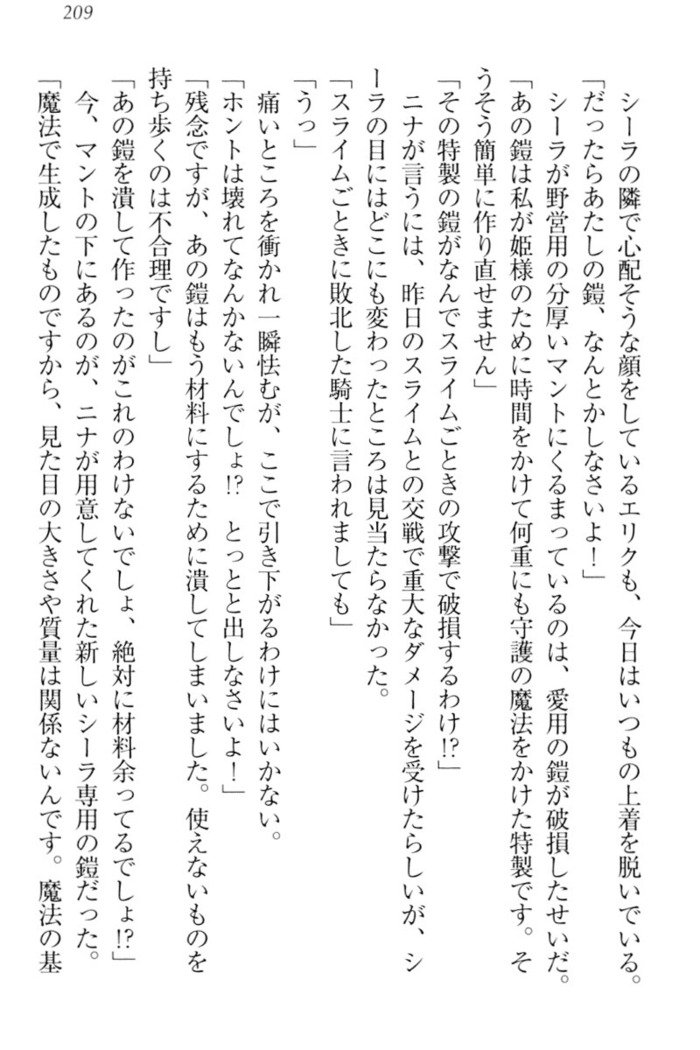 209
　シーラの隣で心配そうな顔をしているエリクも、今日はいつもの上着を脱いでいる。
「だったらあたしの鎧、なんとかしなさいよ！」
　シーラが野営用の分厚いマントにくるまっているのは、愛用の鎧が破損したせいだ。
「あの鎧は私が姫様のために時間をかけて何重にも守護の魔法をかけた特製です。そ
うそう簡単に作り直せません」
「その特製の鎧がなんでスライムごときの攻撃で破損するわけ!?」
　ニナが言うには、昨日のスライムとの交戦で重大なダメージを受けたらしいが、シ
ーラの目にはどこにも変わったところは見当たらなかった。
「スライムごときに敗北した騎士に言われましても」
「うっ」
　痛いところを衝かれ一瞬怯むが、ここで引き下がるわけにはいかない。
「ホントは壊れてなんかないんでしょ!?　とっとと出しなさいよ！」
「残念ですが、あの鎧はもう材料にするために潰してしまいました。使えないものを
持ち歩くのは不合理ですし」
「あの鎧を潰して作ったのがこれのわけないでしょ、絶対に材料余ってるでしょ!?」
　今、マントの下にあるのが、ニナが用意してくれた新しいシーラ専用の鎧だった。
「魔法で生成したものですから、見た目の大きさや質量は関係ないんです。魔法の基